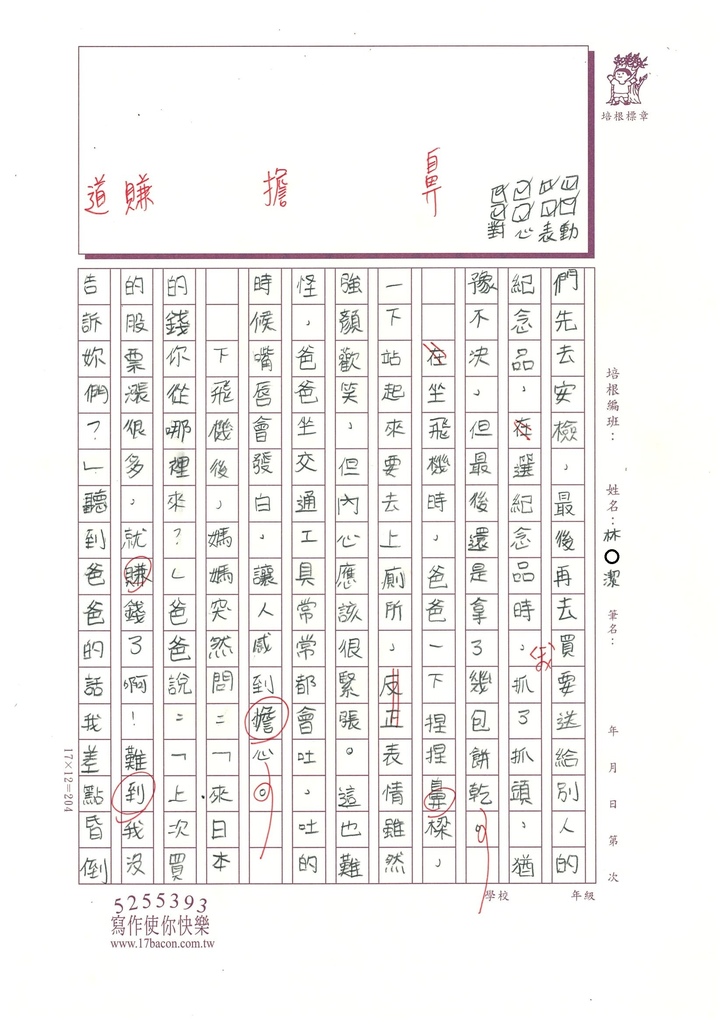 培根標章
道 賺 擔 鼻
動
表
心
對
培根編班：
姓名：林○潔
筆名：
年 月 日 第 次
們先去安檢，最後再去買要送給別人的
紀念品，在選紀念品時，抓了抓頭，猶
(我)
豫不決，但最後還是拿了幾包餅乾。
在坐飛機時，爸爸一下捏捏鼻樑，
一下站起來要去上廁所，皮正表情雖然
強顏歡笑，但內心應該很緊張。這也難
怪，爸爸坐交通工具常常都會吐，吐的
時候嘴唇會發白，讓人感到擔心。
下飛機後，媽媽突然問：「來日本
的錢你從哪裡來？」爸爸說：「上次買
的股票漲很多，就賺錢了啊！難到我沒
告訴妳們？」聽到爸爸的話我差點昏倒
17×12=204
學校 年級
5255393
寫作使你快樂
www.17bacon.com.tw